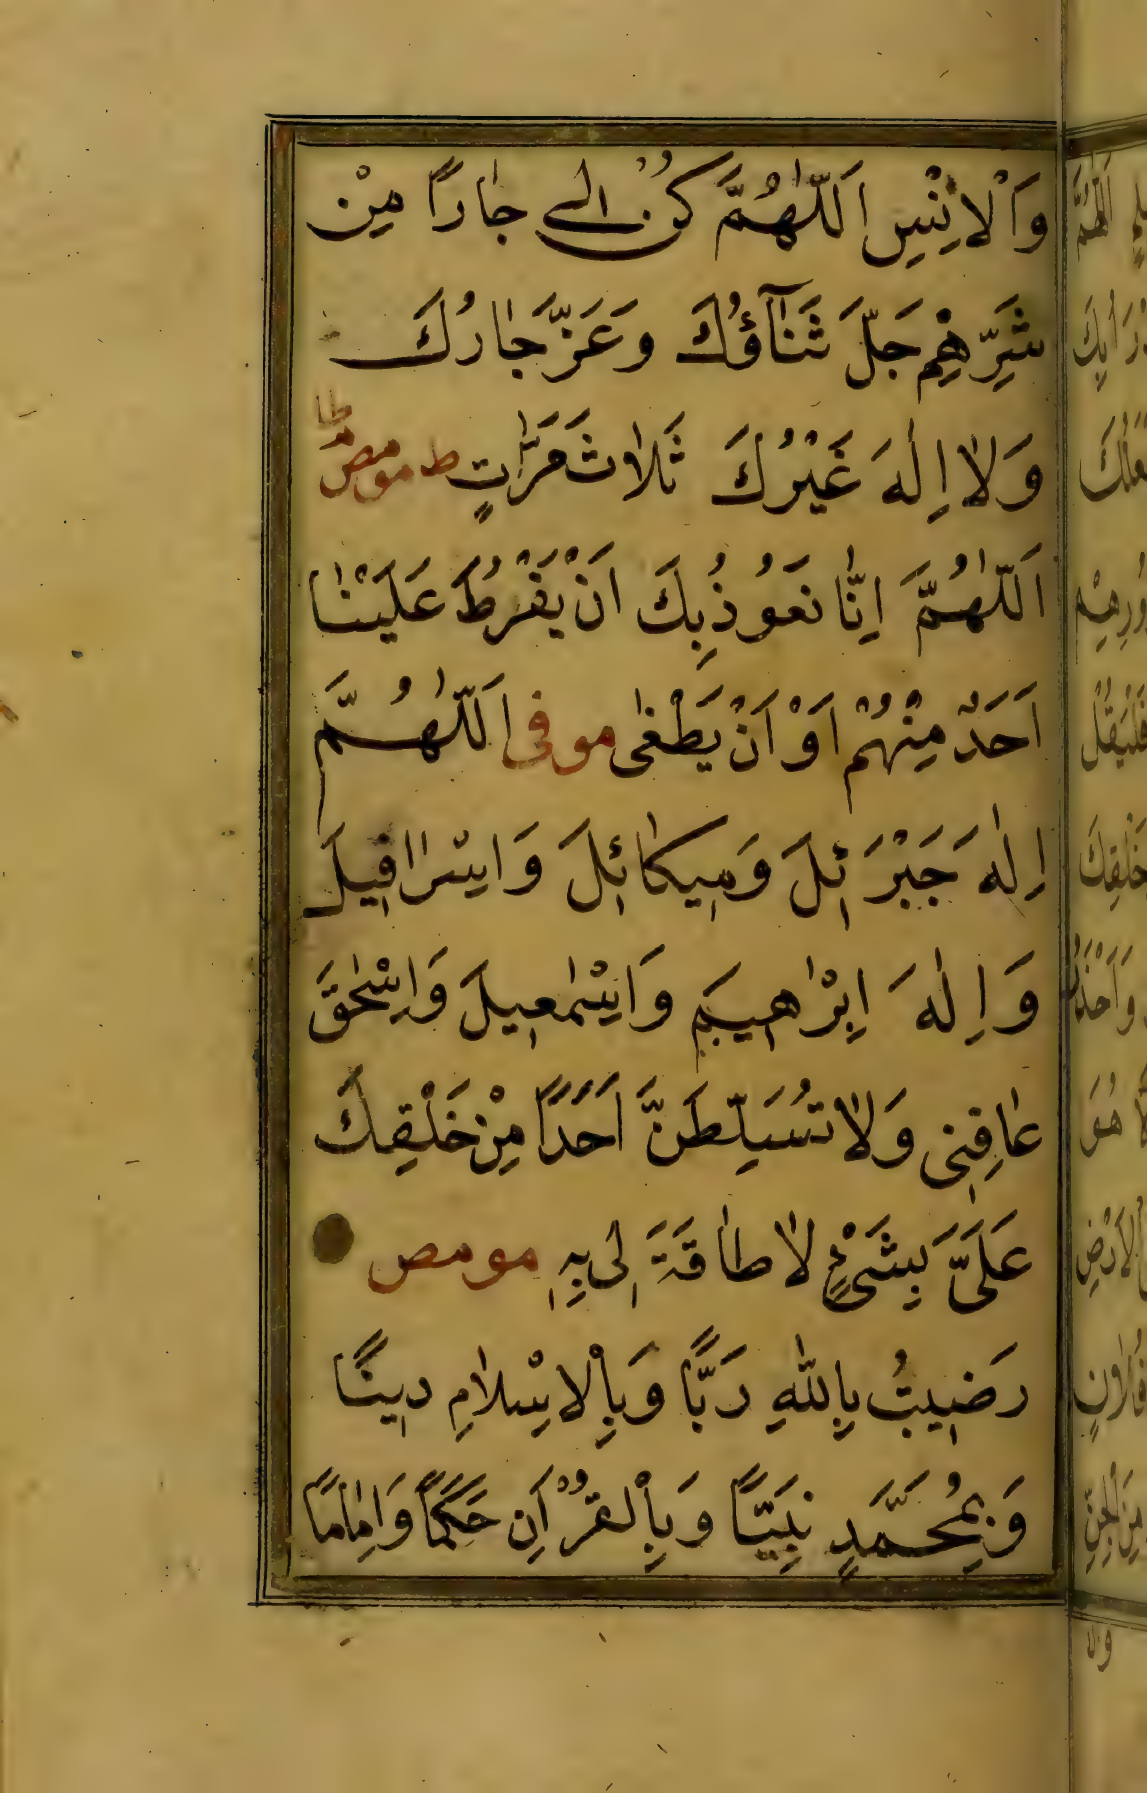 وَالْاِنْسِ اَللّٰهُمَّ كُنْ لٖي جَارًا مِنْ
شَرِّهِمْ جَلَّ ثَنَآؤُكَ وَعَزَّ جَارُكَ
وَلَا اِلٰهَ غَيْرُكَ ثَلٰاثَ مَرَّاتٍ ط مومص
اَللّٰهُمَّ اِنَّا نَعُوذُ بِكَ اَنْ يَفْرُطَ عَلَيْنَا
اَحَدٌ مِنْهُمْ اَوْ اَنْ يَطْغٰى مو فى اَللّٰهُمَّ
اِلٰهَ جَبْرَئِلَ وَمِيكَائِلَ وَاِسْرَافِيلَ
وَاِلٰهَ اِبْرٰاهِيمَ وَاِسْمٰعِيلَ وَاِسْحٰقَ
عَافِنِى وَلَا تُسَلِّطَنَّ اَحَدًا مِنْ خَلْقِكَ
عَلَىَّ بِشَىْءٍ لَا طَاقَةَ لِى بِهِ مومص
رَضِيتُ بِاللّٰهِ رَبًّا وَبِالْاِسْلَامِ دِينًا
وَبِمُحَمَّدٍ نَبِيًّا وَبِالْقُرْاٰنِ حَكَمًا وَاِمَامًا